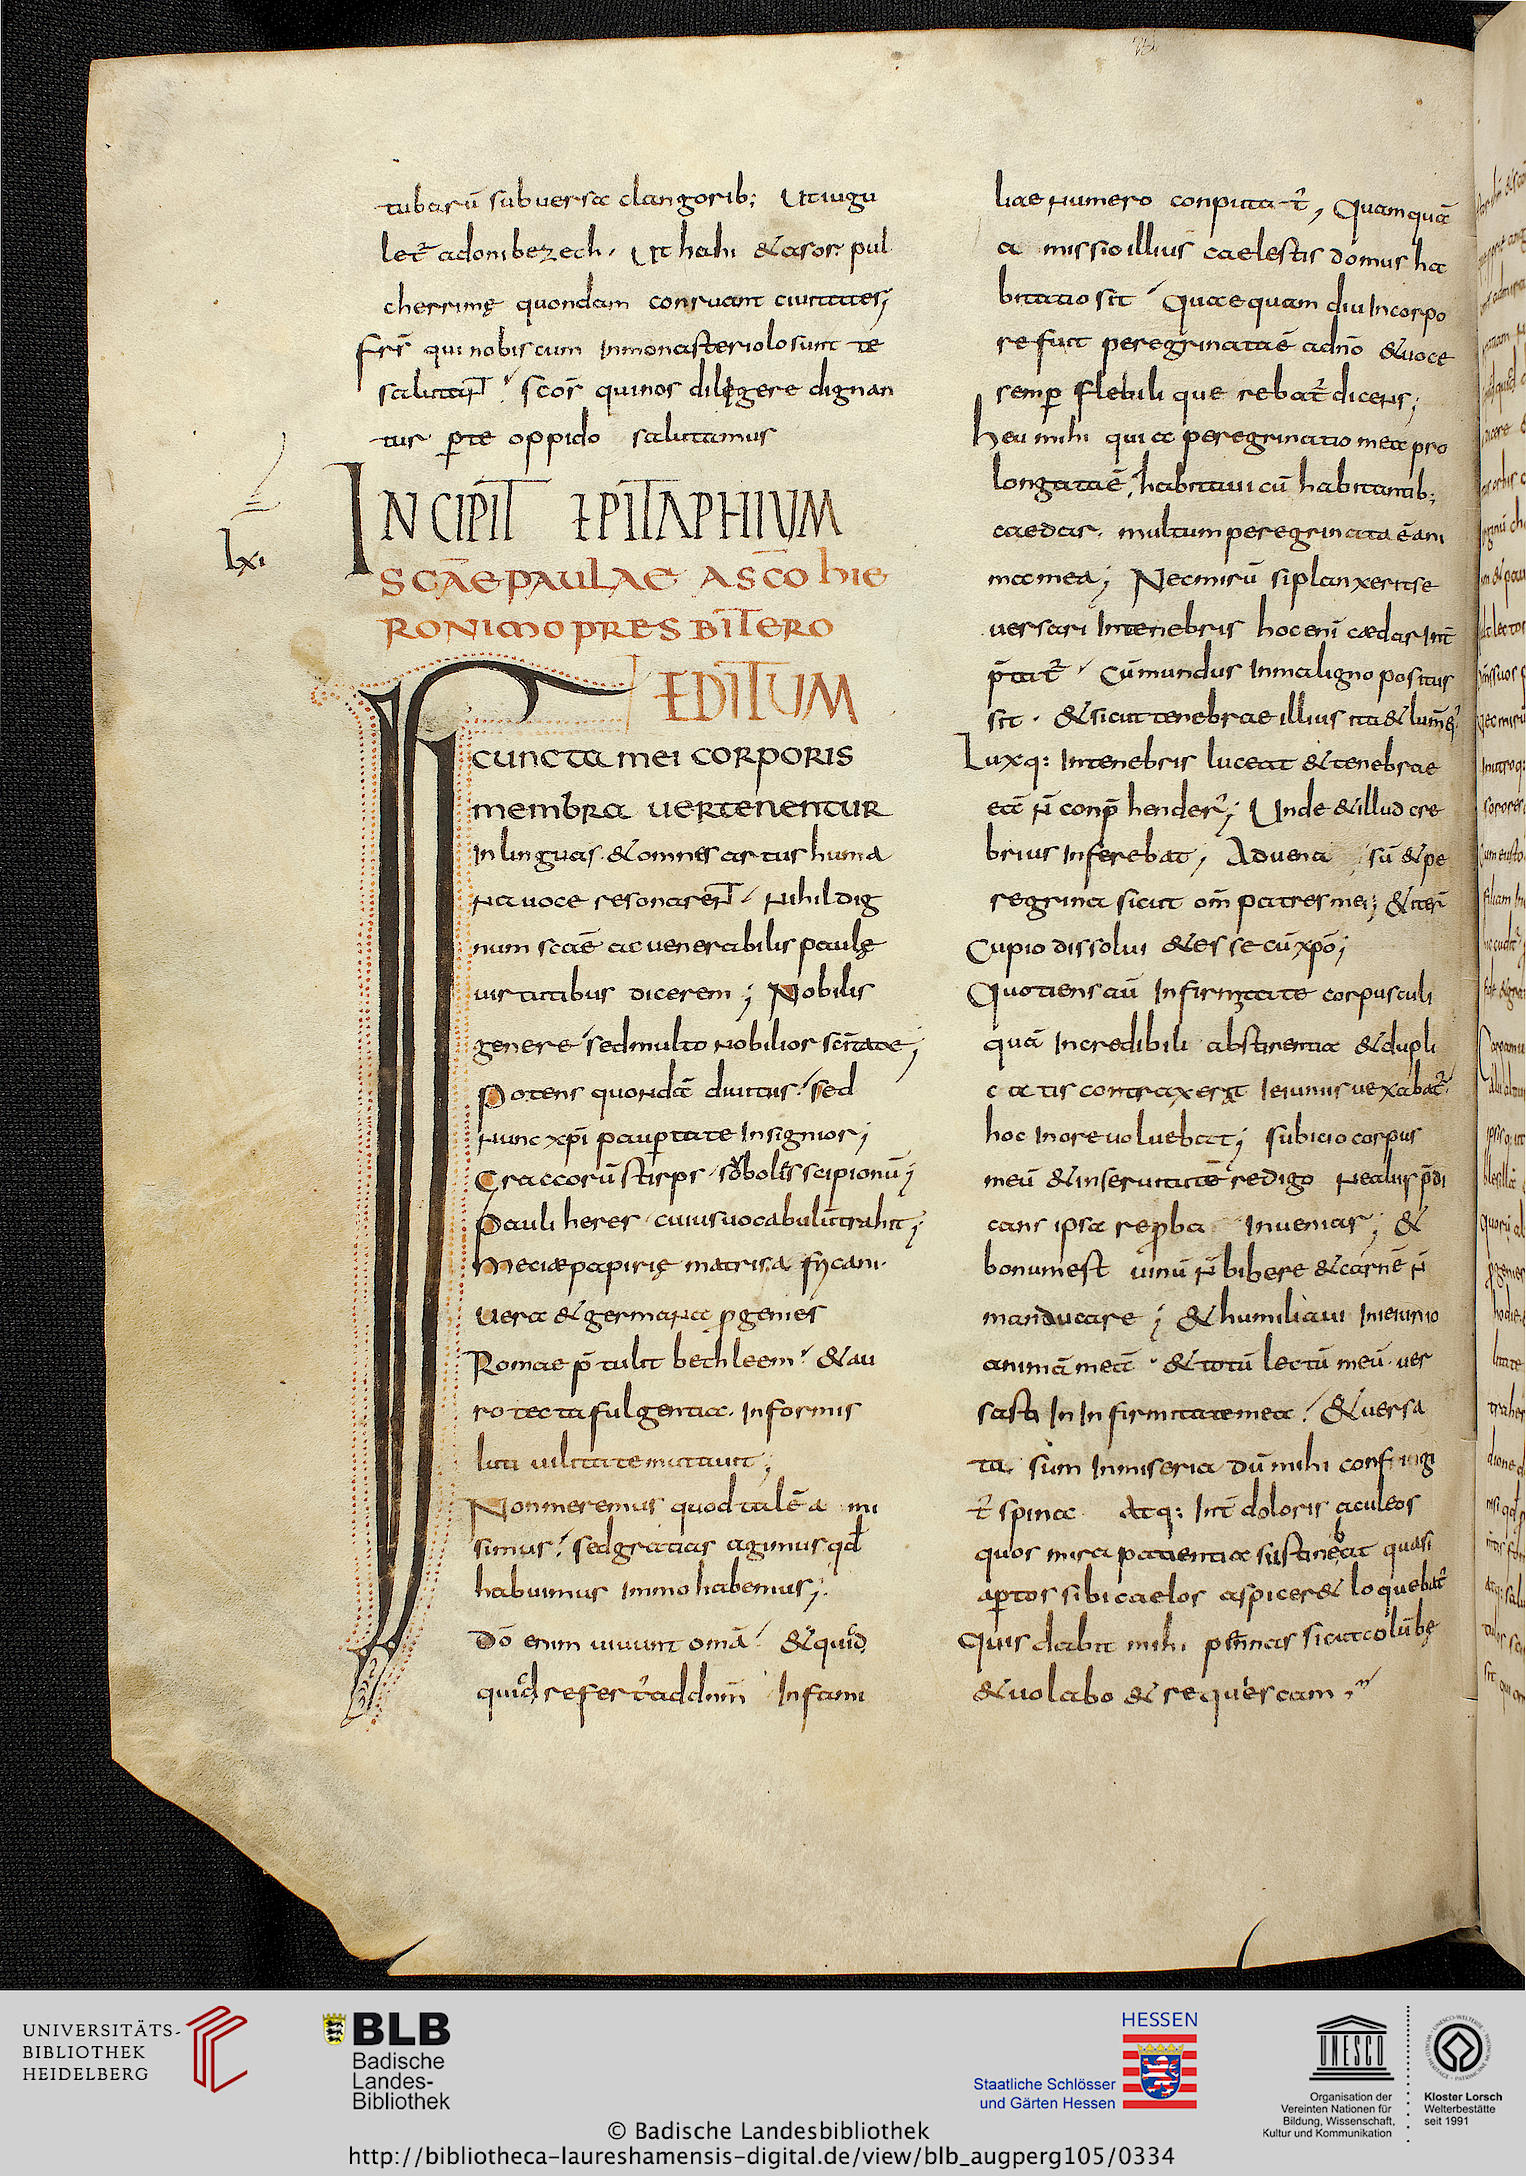 tubarū subuersa clangorib; Ut iugu
let̄ adonibezech · Ut hahi & asor pul
cherrimę quondam conruant ciuitates;
frī qui nobiscum Inmonasteriolo sunt te
salutant ; scōs qui nos diligere dignan
tur ꝑ te oppido salutamus
lxi
INCIPIT EPITAPHIUM
SCĀE PAULAE A SCŌ HIE
RONIMO PRESBITERO
EDITUM
cuncta mei corporis
membra uertenentur
In linguas · & omnes artus huma
na uoce resonarent · Nihil dig
num scāe ac uenerabilis paulę
uirtutibus dicerem ; Nobilis
genere sed multo nobilior scītate ;
Potens quondā diuitiis · sed
nunc xp̄i pauꝑtate Insignior ;
Graccorū stirps · sobolis scipionū ;
Pauli heres · cuius uocabulū trahit ;
Meciae papirię matris afycani ·
uera & germana ꝓgenies
Romae p̄tulit bethleem · & au
ro tecta fulgentia · Informis
luti uilitate mutauit ;
Non meremus quod talē a mi
simus · sed gratias agimus qd̄
habuimus immo habemus ;
Dō enim uiuunt omā · & quid
quid refert̄ ad dnm̄ In fami
liae numero conputat̄ , Quam quā
a missio illius caelestis domus ha
bitatio sit · Quae quam diu In corpo
re fuit peregrinata ē a dn̄o & uoce
semp̄ flebili que rebat̄ dicens ;
heu mihi quia peregrinatio mea pro
longata ē , habitaui cū habitantib;
caedar · multum peregrinata ē ani
ma mea ; Nec mirū si planxerit se
uersari In tenebris hoc enī caedar Int̄
p̄tat̄ · Cū mundus In maligno positus
sit · & sicut tenebrae illius ita & lum̄ eꝰ
Lux q: In tenebris luceat & tenebrae
eā n̄ conp̄henderꝰ ; Unde & illud cre
brius Inferebat , Aduena sū & pe
regrina sicut om̄ patres mei ; & iterū
Cupio dissolui & esse cū xp̄o ;
Quotiens aū Infirmitate corpusculi
quā Incredibili abstinentia & dupli
catis contraxerat ieiuniis uexabat̄
hoc In ore uoluebat ; subicio corpus
meū & in seruitutē redigo Ne aliis p̄di
cans ipsa reproba Inueniar ; &
bonum est uinū n̄ bibere & carnē n̄
manducare ; & humiliaui In ieiunio
animā meā · & totū lectū meū · uer
sasti In Infirmitate mea · & uersa
ta sum In miseria dū mihi confringi
t̄ spina Atq: Int̄ doloris aculeos
quos mira patientia sustinebat quasi
aꝑtos sibi caelos aspicer& loquebat̄
Quis dabit mihi pennas sicut colūbę
& uolabo & requiescam ·
UNIVERSITÄTS-
BIBLIOTHEK
HEIDELBERG
BLB
Badische
Landes-
Bibliothek
HESSEN
Staatliche Schlösser
und Gärten Hessen
UNESCO
Organisation der
Vereinten Nationen für
Bildung, Wissenschaft,
Kultur und Kommunikation
Kloster Lorsch
Welterbestätte
seit 1991
© Badische Landesbibliothek
http://bibliotheca-laureshamensis-digital.de/view/blb_augperg105/0334